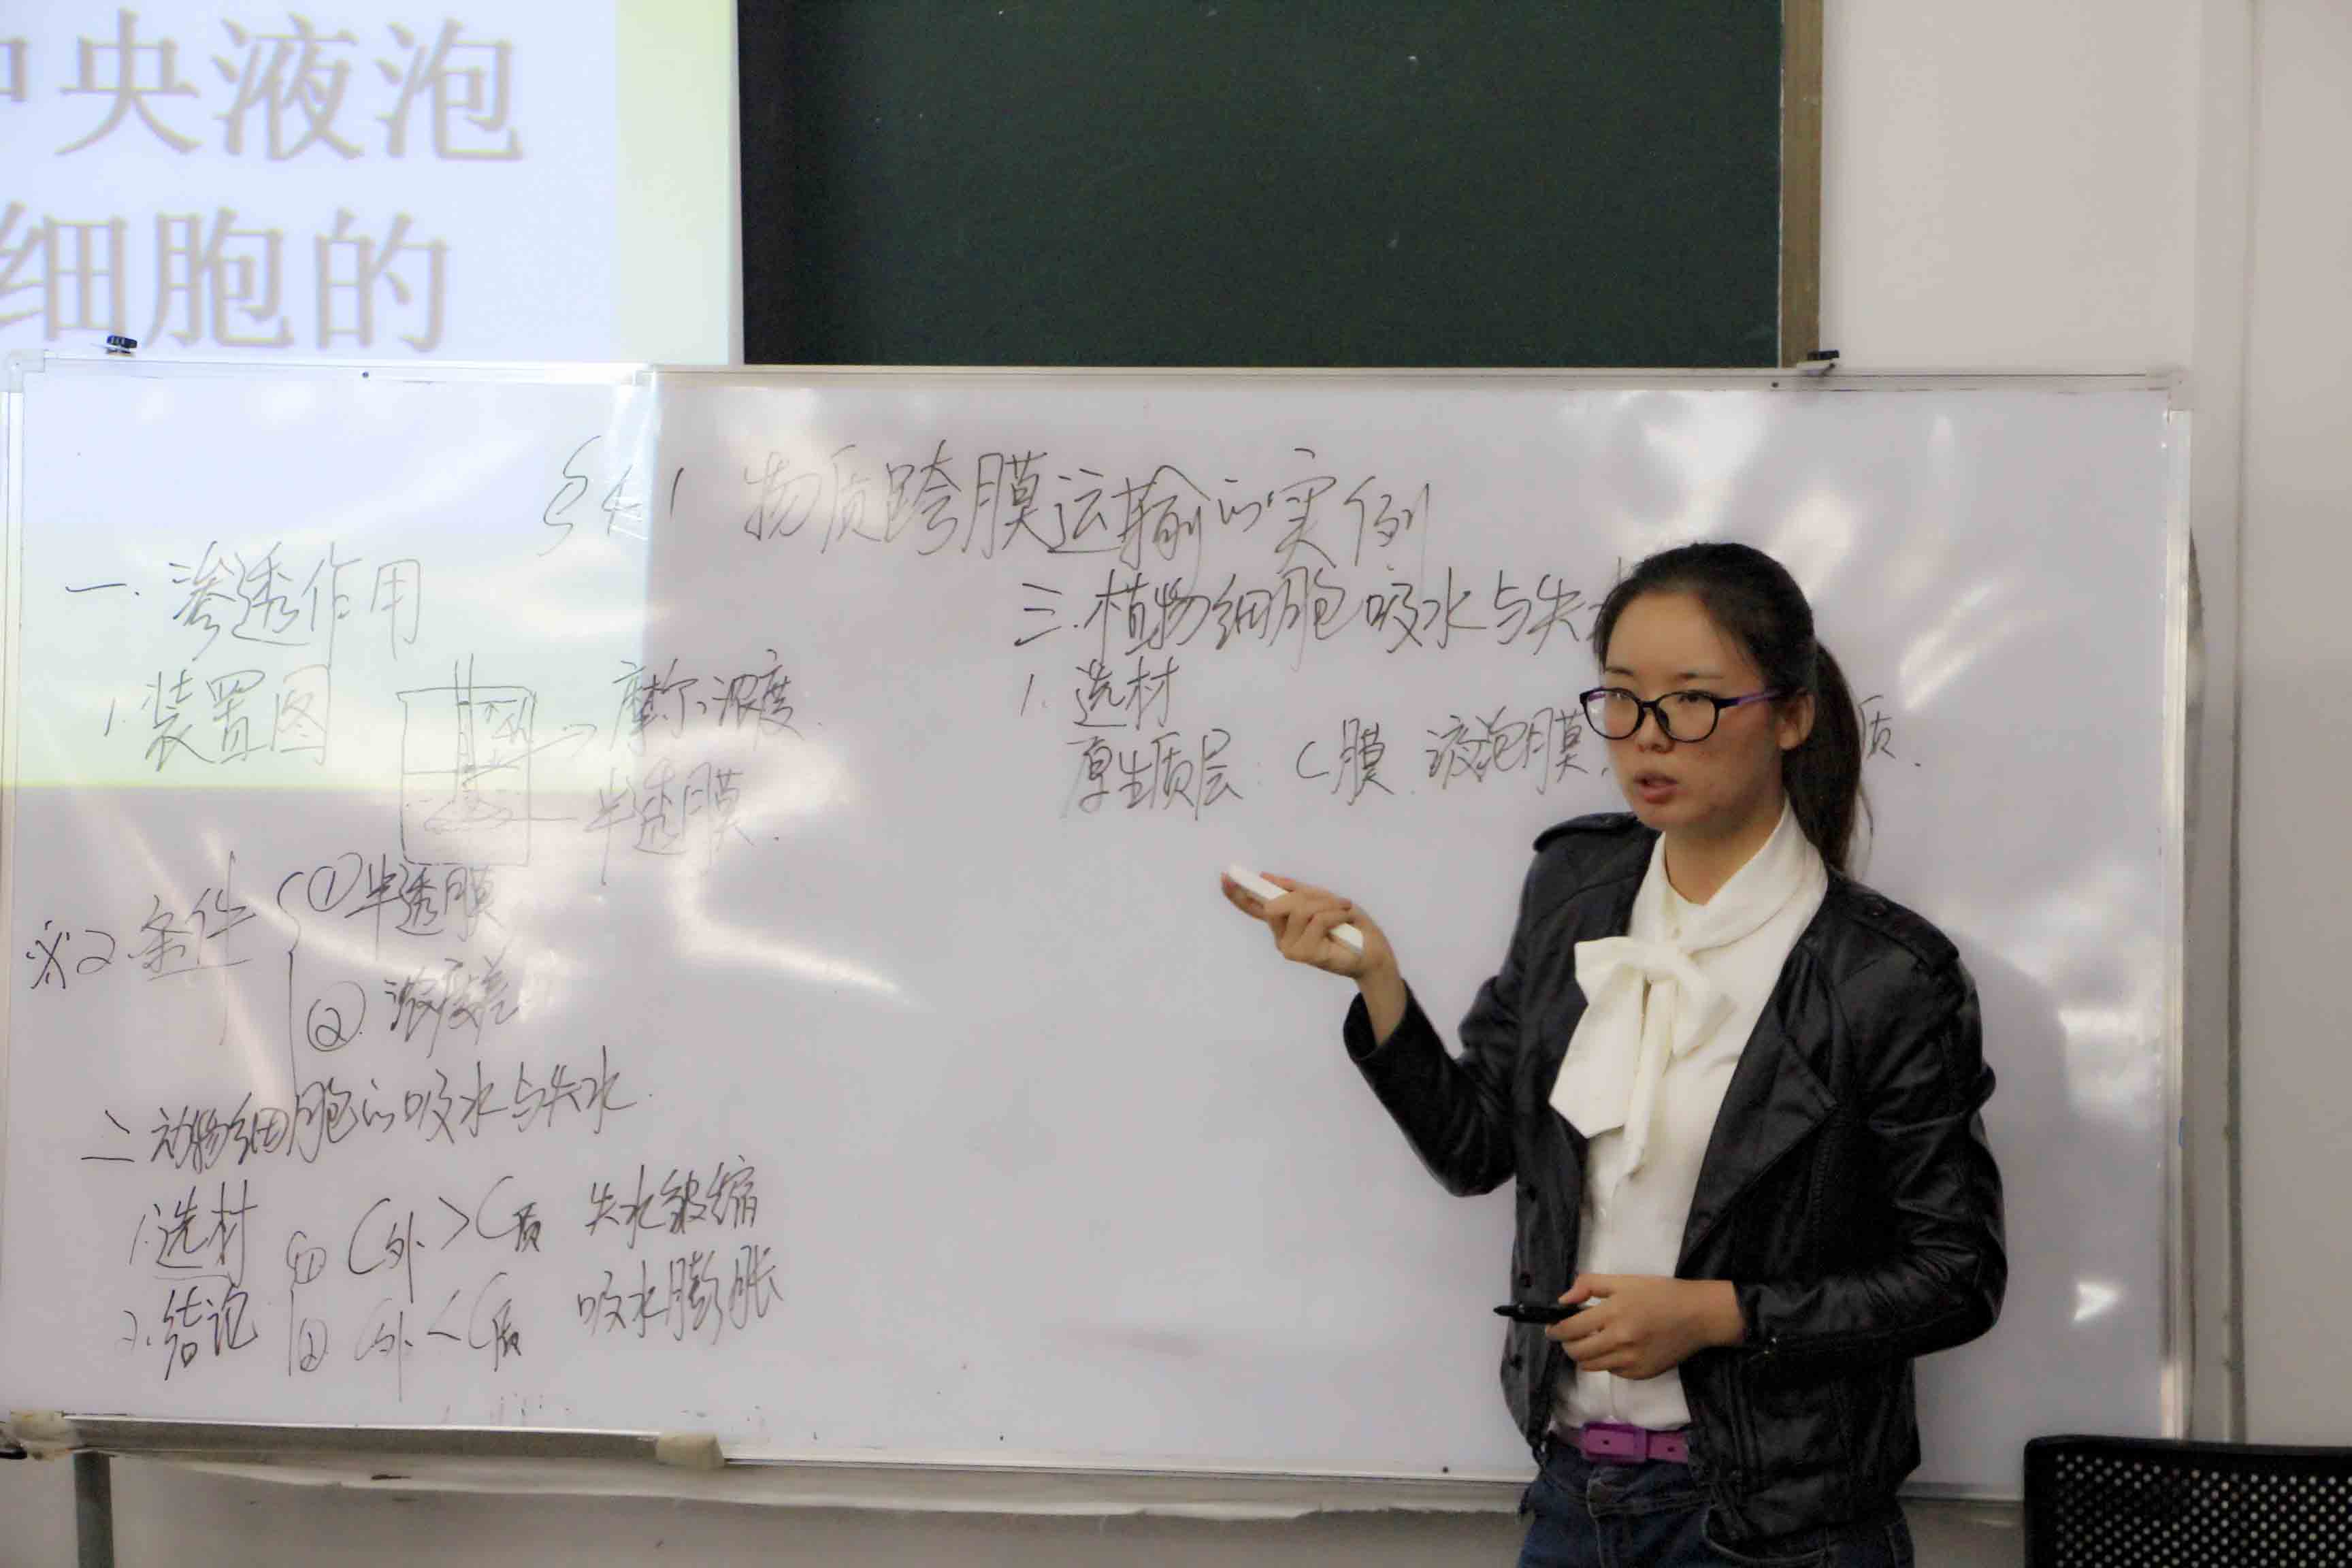 中央液泡
细胞的
§4.1 物质跨膜运输的实例
一.渗透作用
1.装置图
摩尔浓度.
半透膜.
※2.条件
①半透膜
②.浓度差
二动物细胞的吸水与失水.
1.选材
2.结论
① C外>C质 失水皱缩
② C外<C质 吸水膨胀
三.植物细胞吸水与失
1.选材
原生质层:C膜.液泡膜.
质.